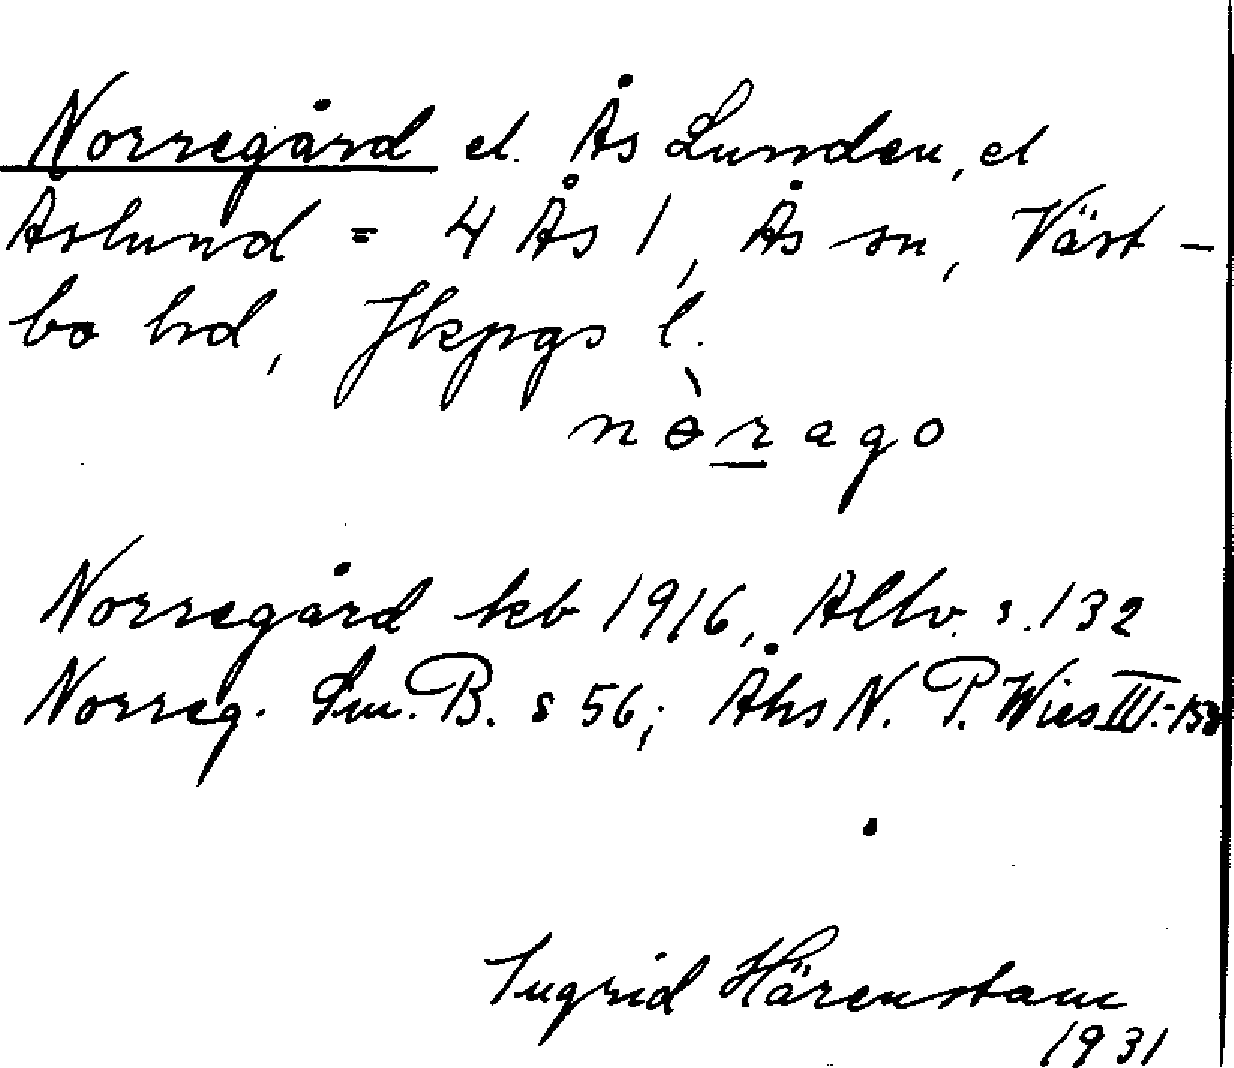 Norregård el. Ås Lunden, el
Åslund = 4 Ås 1, Ås sn, Väst-
bo hd, Jkpgs l.
nɵ̀rago
Norregård kb 1916, Allv. s. 132
Norreg. Sm. B. s 56; Åhs N. P. Wies III:
Ingrid Härenstam
1931